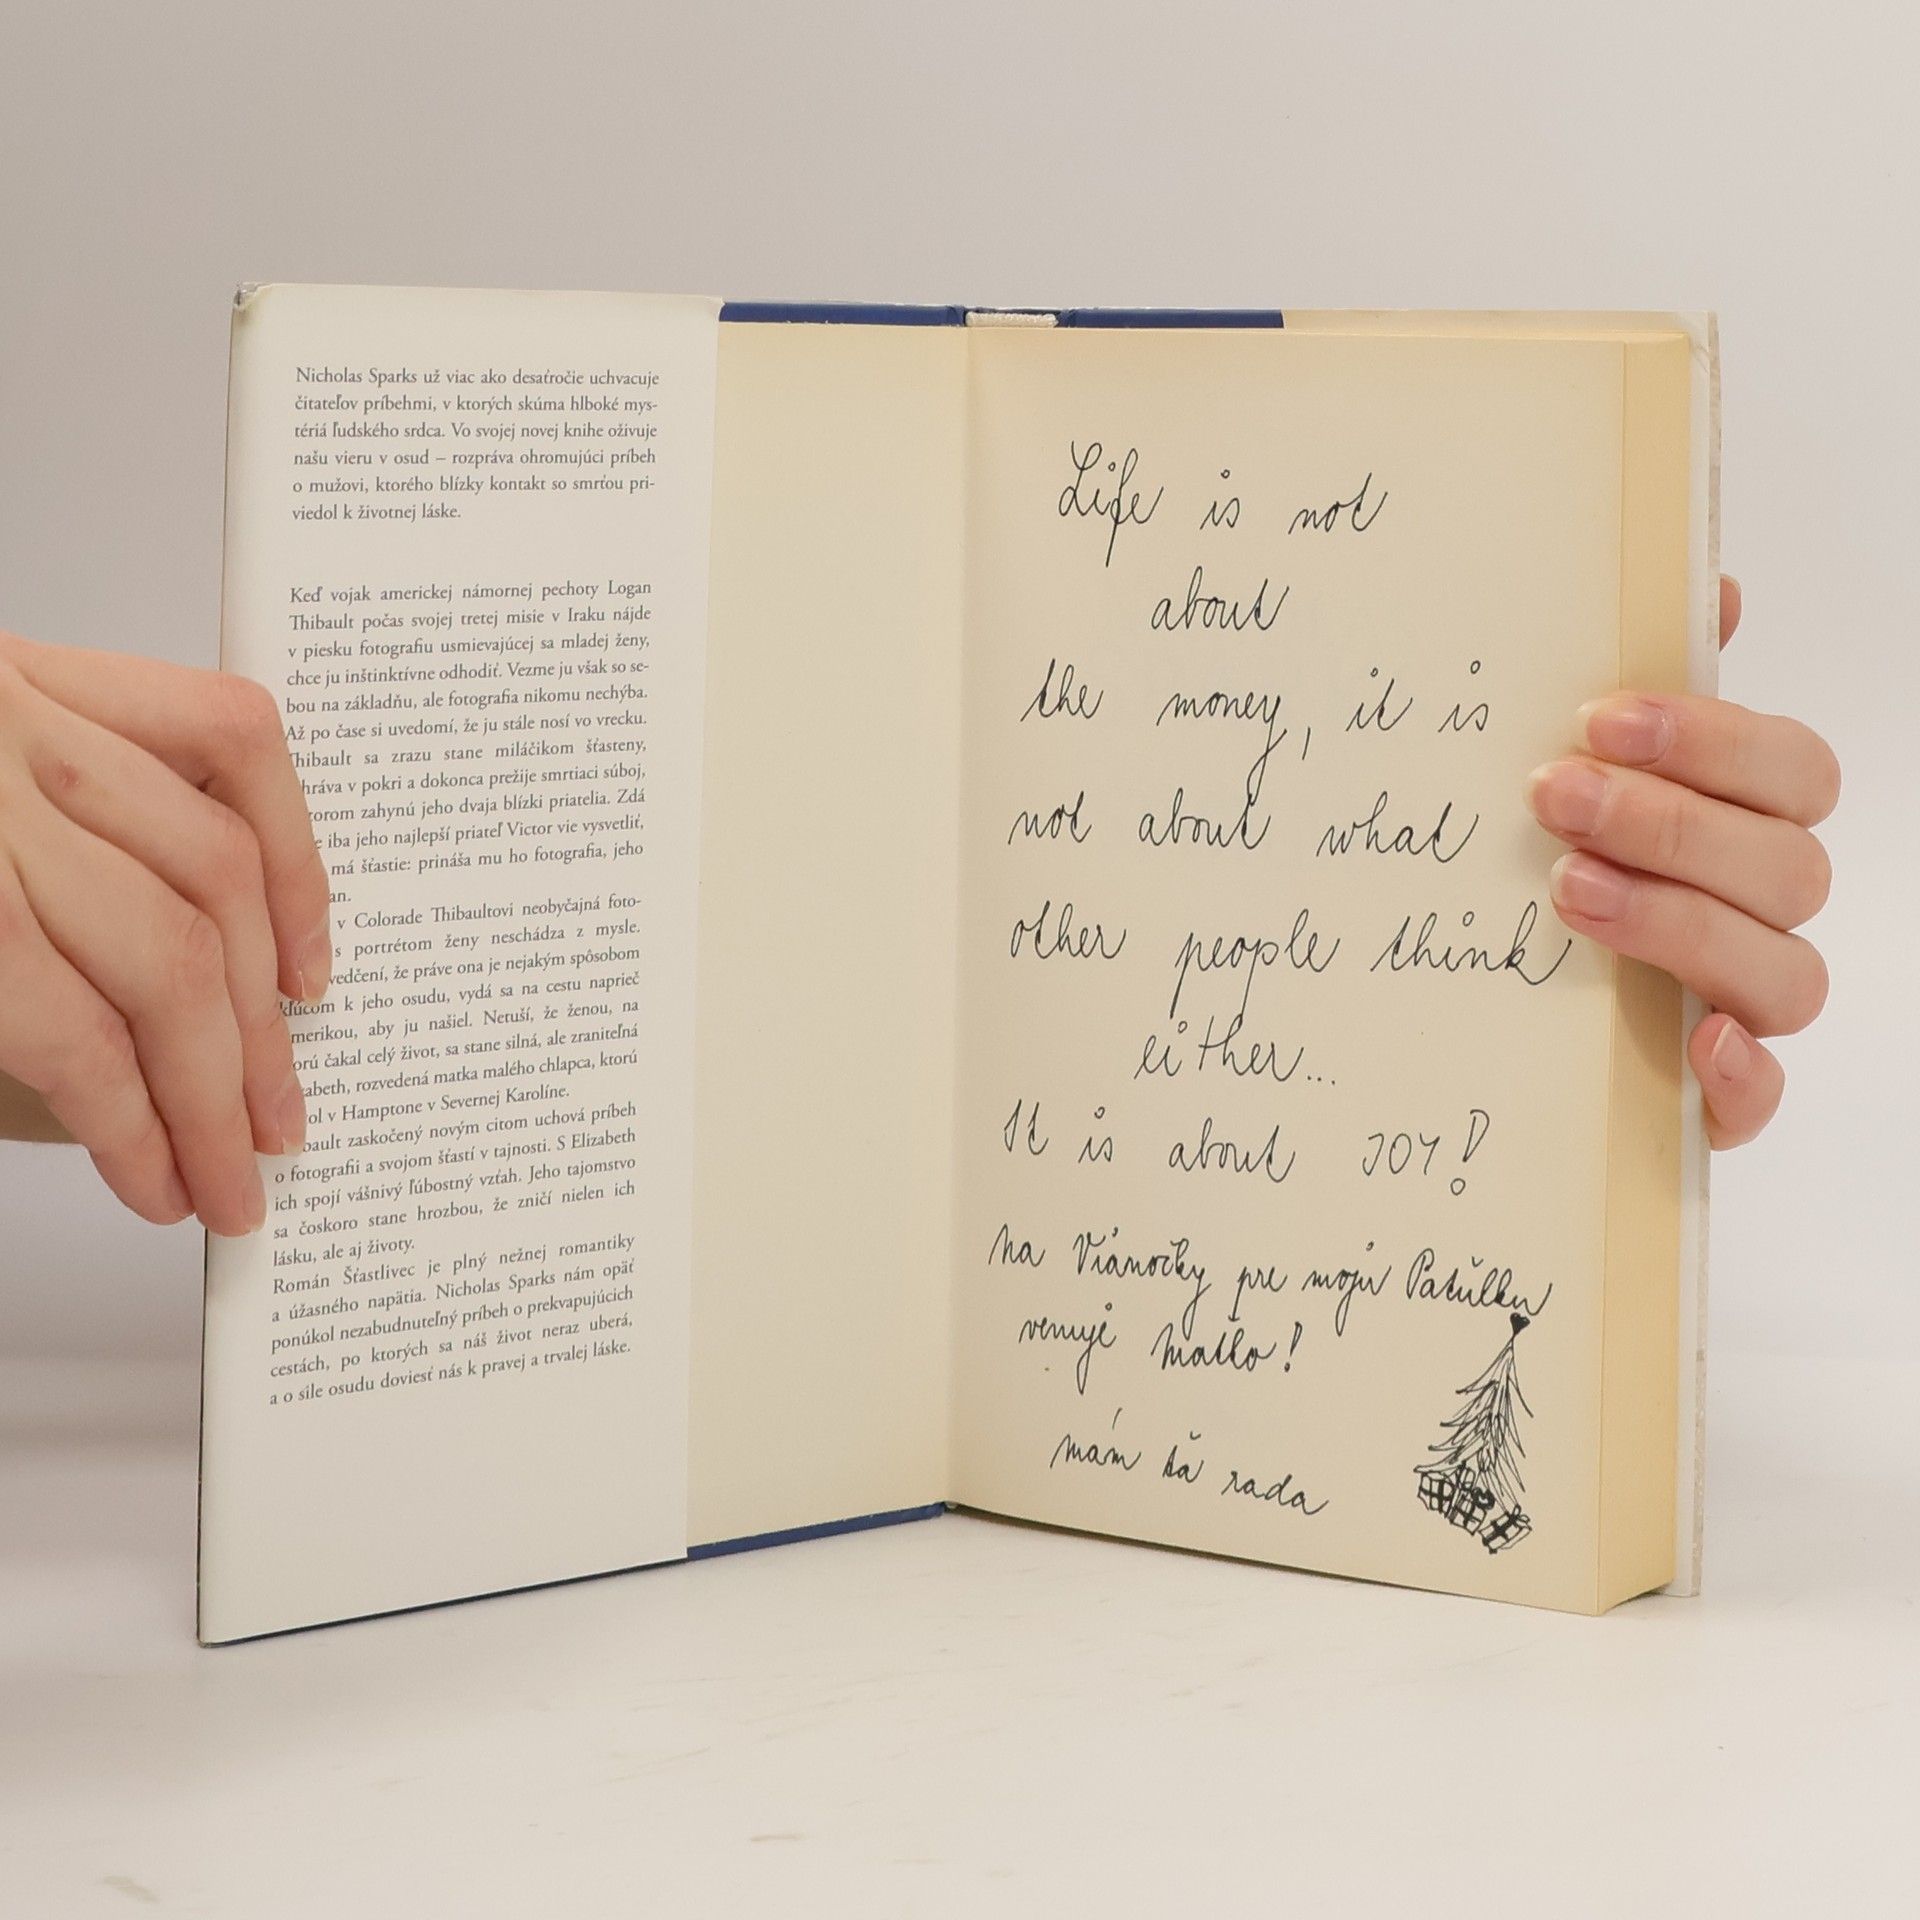 Nicholas Sparks už viac ako desaťročie uchvacuje
čitateľov príbehmi, v ktorých skúma hlboké mys-
tériá ľudského srdca. Vo svojej novej knihe oživuje
našu vieru v osud – rozpráva ohromujúci príbeh
o mužovi, ktorého blízky kontakt so smrťou pri-
viedol k životnej láske.
Keď vojak americkej námornej pechoty Logan
Thibault počas svojej tretej misie v Iraku nájde
v piesku fotografiu usmievajúcej sa mladej ženy,
chce ju inštinktívne odhodiť. Vezme ju však so se-
bou na základňu, ale fotografia nikomu nechýba.
Až po čase si uvedomí, že ju stále nosí vo vrecku.
Thibault sa zrazu stane miláčikom šťasteny,
hráva v pokri a dokonca prežije smrtiaci súboj,
torom zahynú jeho dvaja blízki priatelia. Zdá
e iba jeho najlepší priateľ Victor vie vysvetliť,
má šťastie: prináša mu ho fotografia, jeho
an.
v Colorade Thibaultovi neobyčajná foto-
s portrétom ženy neschádza z mysle.
vedčení, že práve ona je nejakým spôsobom
kľúčom k jeho osudu, vydá sa na cestu naprieč
merikou, aby ju našiel. Netuší, že ženou, na
orú čakal celý život, sa stane silná, ale zraniteľná
zabeth, rozvedená matka malého chlapca, ktorú
ol v Hamptone v Severnej Karolíne.
bault zaskočený novým citom uchová príbeh
o fotografii a svojom šťastí v tajnosti. S Elizabeth
ich spojí vášnivý ľúbostný vzťah. Jeho tajomstvo
sa čoskoro stane hrozbou, že zničí nielen ich
lásku, ale aj životy.
Román Šťastlivec je plný nežnej romantiky
a úžasného napätia. Nicholas Sparks nám opäť
ponúkol nezabudnuteľný príbeh o prekvapujúcich
cestách, po ktorých sa náš život neraz uberá,
a o sile osudu doviesť nás k pravej a trvalej láske.
Life is not
about
the money, it is
not about what
other people think
either...
It is about JOY!
na Vianočky pre moju Paťulku
venuje Maťka!
mám ťa rada